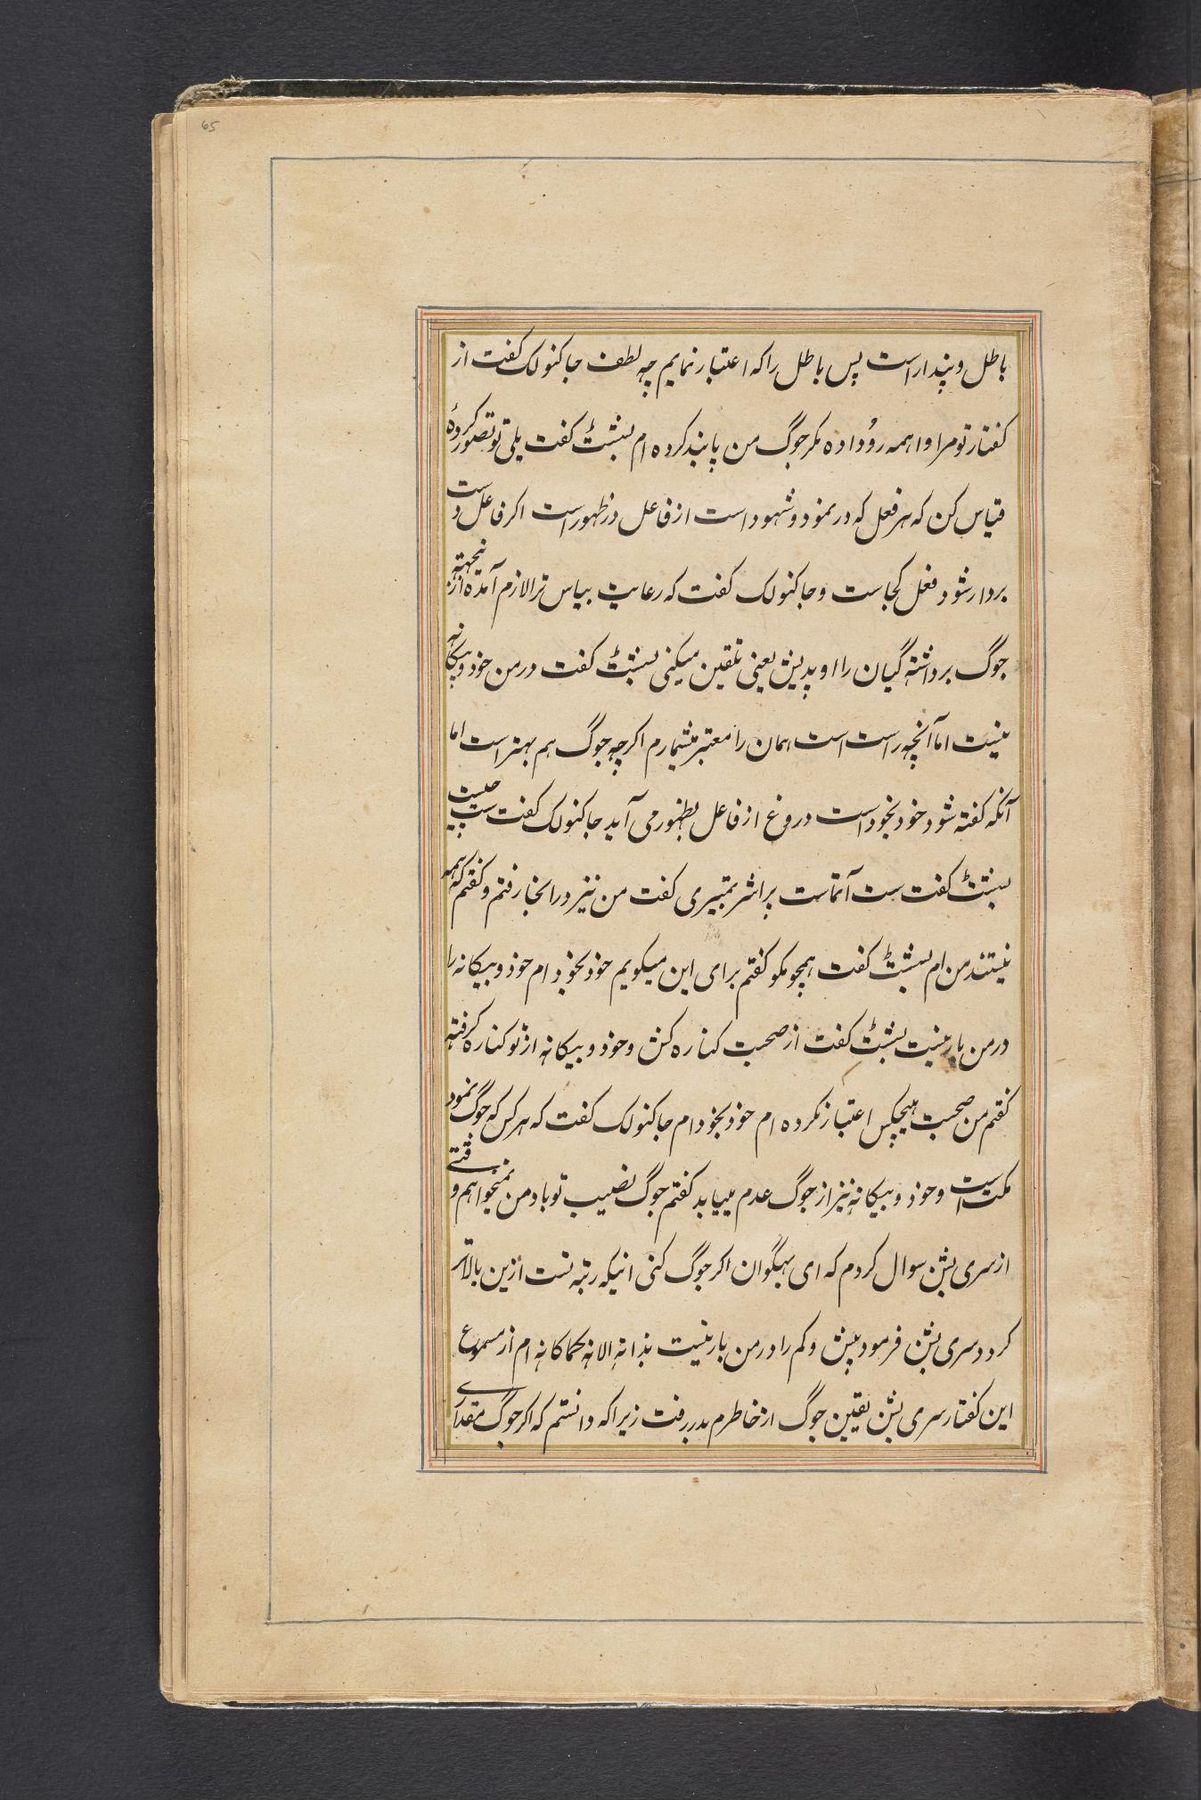 65
باطل و پندار است پس باطل را که اعتبار نمایم چه لطف جاکنولک گفت از
کفتار تو مرا واهمه روُداده مکر جوگ من پابند کرده ام بسشٹ کفت بلی تو تصور کردهٔ
قیاس کن که هر فعل که در نمود و شهود است از فاعل در ظهور است اکر فاعل دست
بردار شود فعل کجاست و جاکنولک کفت که رعایت بیاس ترا لازم آمده ازینجهته
جوگ برداشته گیان را اوپدیش یعنی تلقین میکنی بسشٹ کفت در من خود و بیکانه
نیست اما آنچه راست است همان را معتبر میشمارم اکرچه جوگ هم بهتر است اما
آنکه کفته شود خود بخود است دروغ از فاعل بظهور می آید جاکنولک کفت ست چیست
بسشٹ کفت ست آتماست پراشر بتمیزی کفت من نیز در انجا رفتم و کفتم که همه
نیستند من ام بسشٹ کفت همچو مکو کفتم برای این میکویم خود بخود ام خود و بیکانه را
در من بار نیست بسشٹ کفت از صحبت کناره کش و خود و بیکانه از تو کناره کرفته
کفتم من صحبت هیچکس اعتبار نکرده ام خود بخود ام جاکنولک کفت که هر کس که جوگ نمود
مکت است و خود و بیکانه نیز از جوگ عدم مییابد کفتم جوگ نصیب تو باد من نمیخواهم وقتی
از سری بشن سوال کردم که ای بهگوان اکر جوگ کنی انیکه رتبه تست ازین بالاتر
کردد سری بشن فرمود بیش و کم را در من بار نیست بذاته الانه کماکانه ام از مسموع
این کفتار سری بشن یقین جوگ از خاطرم بدر رفت زیرا که دانستم که اکر جوگ مقداری